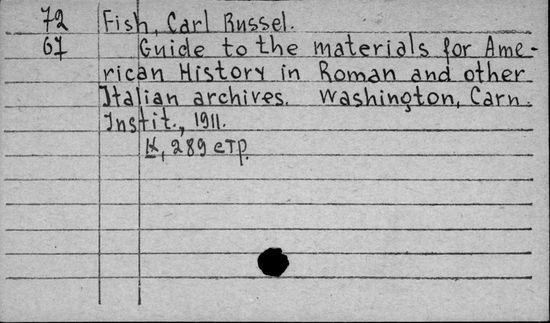 72 Fish, Carl Russel.
67 Guide to the materials for Ame-
rican History in Roman and other
Italian archives. Washington, Carn.
Instit., 1911.
IX, 289 стр.